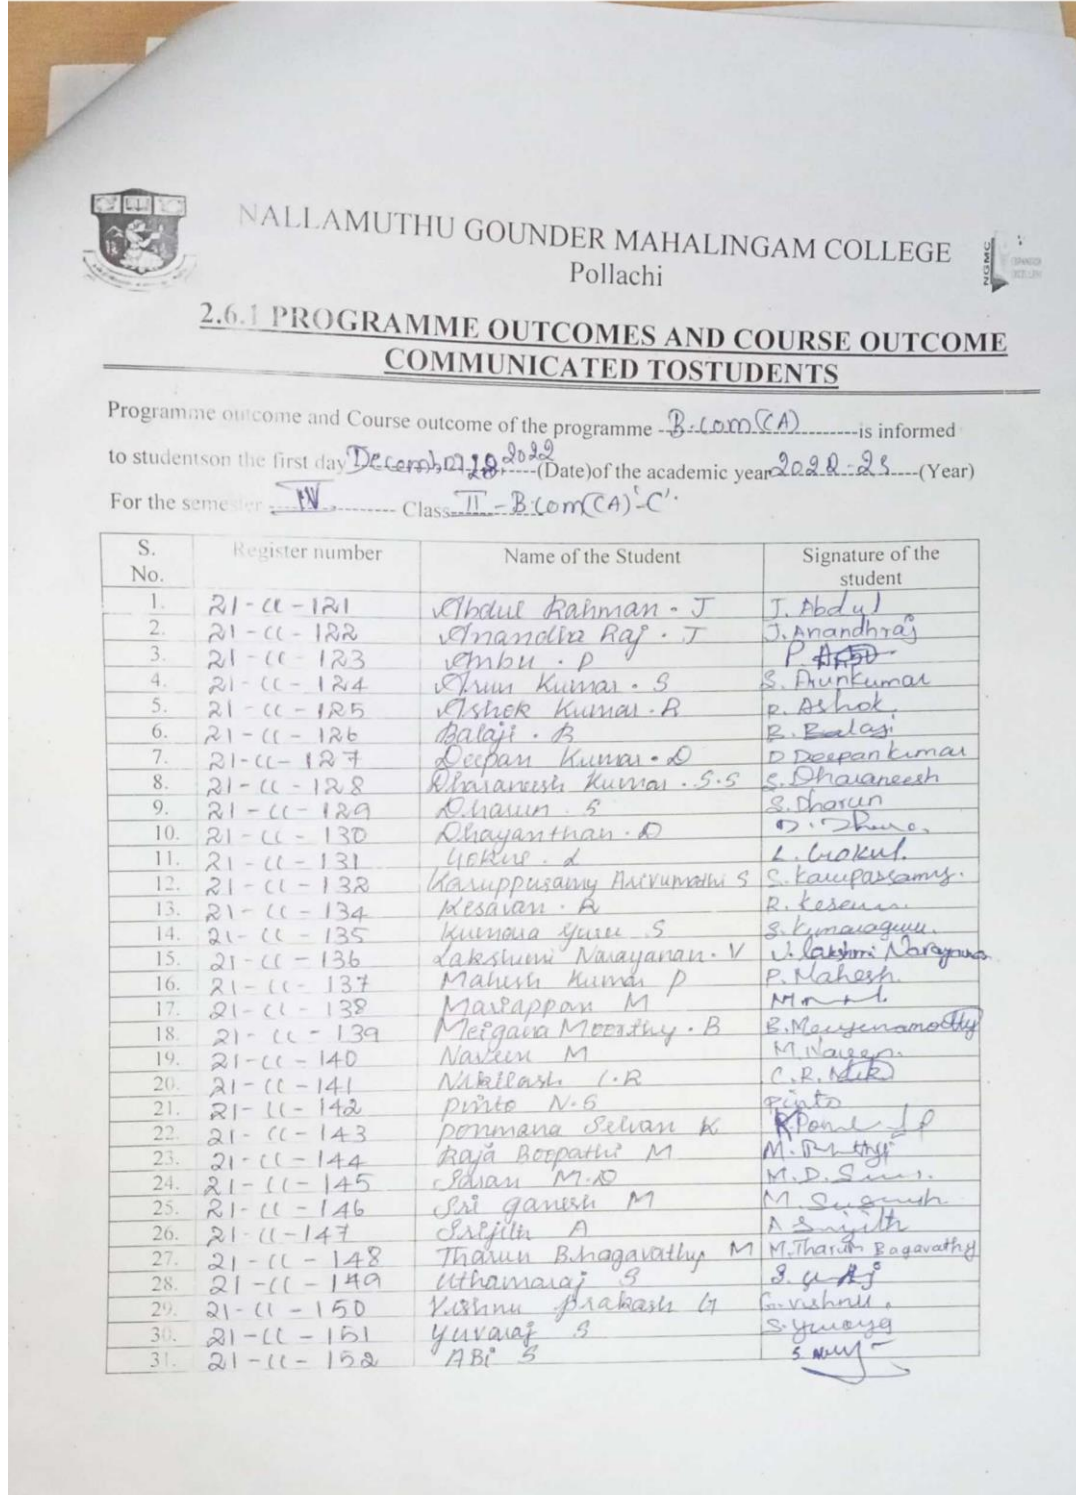 NALLAMUTHU GOUNDER MAHALINGAM COLLEGE
Pollachi
NGMC
2.6.1 PROGRAMME OUTCOMES AND COURSE OUTCOME
COMMUNICATED TOSTUDENTS
Programme outcome and Course outcome of the programme B.com(CA) is informed
to studentson the first day December 2022 (Date)of the academic year 2022-23 (Year)
For the semester IV Class II - B.Com(CA) 'C'
S. No. Register number Name of the Student Signature of the student
1. 21-CC-121 Abdul Rahman. J J. Abdul
2. 21-CC-122 Anandha Raj. J J. Anandhraj
3. 21-CC-123 Ambu. P P.
4. 21-CC-124 Arun Kumar. S S. Arunkumar
5. 21-CC-125 Ashok Kumar. R R. Ashok
6. 21-CC-126 Balaji. B B. Balaji
7. 21-CC-127 Deepan Kumar. D D Deepankumar
8. 21-CC-128 Dharaneesh Kumar. S.S S. Dharaneesh
9. 21-CC-129 Dharun. S S. Dharun
10. 21-CC-130 Dhayanthan. D
11. 21-CC-131 Gokul. L L. Gokul.
12. 21-CC-132 Karuppusamy S S. Karupassamy.
13. 21-CC-134 Kesavan. R R.
14. 21-CC-135 Kumara guru S S. Kumaraguru.
15. 21-CC-136 Lakshmi Narayanan. V V. Lakshmi Narayanan
16. 21-CC-137 Mahesh Kumar P P. Mahesh.
17. 21-CC-138 Mariappan M
18. 21-CC-139 Meigana Moorthy. B B.
19. 21-CC-140 Naveen M M. Naveen.
20. 21-CC-141 Nikilash C.R C.R.
21. 21-CC-142 Pinto N.S Pinto
22. 21-CC-143 Ponmana Selvan K
23. 21-CC-144 Raja Boopathi M M.
24. 21-CC-145 Saran M.D M.D.
25. 21-CC-146 Sri ganesh M M.
26. 21-CC-147 Srijith A A Srijith
27. 21-CC-148 Tharun Bhagavathy M M. Tharun Bagavathy
28. 21-CC-149 Uthamaraj S S.
29. 21-CC-150 Vishnu prakash G G. Vishnu.
30. 21-CC-151 Yuvaraj S S.
31. 21-CC-152 ABi S S.